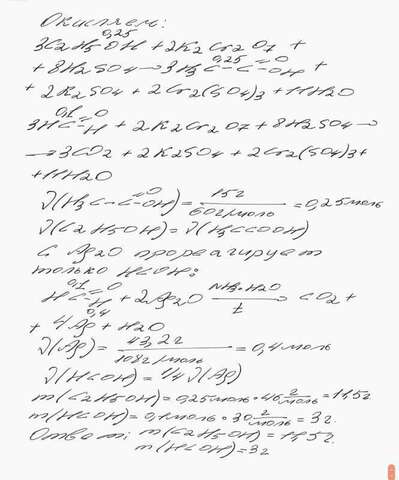 Окисляем:
0,25
3C2H5OH + 2K2Cr2O7 +
0,25 O
+ 8H2SO4 → 3H3C–C–OH +
+ 2K2SO4 + 2Cr2(SO4)3 + 11H2O
0,1 O
3HC–H + 2K2Cr2O7 + 8H2SO4 →
→ 3CO2 + 2K2SO4 + 2Cr2(SO4)3 +
+ 11H2O
ν(H3C–C=O–OH) = 15г / 60г/моль = 0,25моль
ν(C2H5OH) = ν(H3CCOOH)
С Ag2O прореагирует
только HCOH:
0,1 O
HC–H + 2Ag2O NH3·H2O → t CO2 +
0,4
+ 4Ag + H2O
ν(Ag) = 43,2г / 108г/моль = 0,4моль
ν(HCOH) = 1/4 ν(Ag)
m(C2H5OH) = 0,25моль · 46 г/моль = 11,5г
m(HCOH) = 0,1моль · 30 г/моль = 3г.
Ответ: m(C2H5OH) = 11,5г.
m(HCOH) = 3г